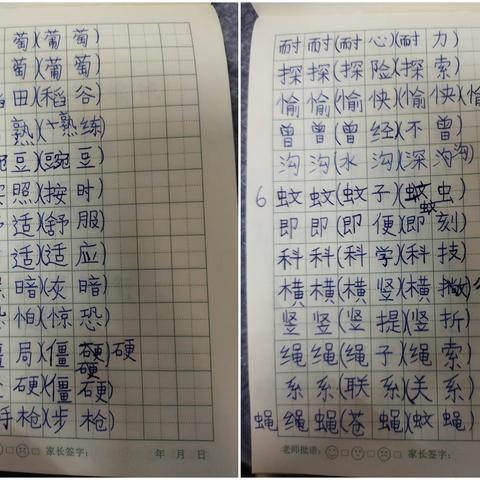 萄)(葡萄)
萄)(葡萄)
稻田)(稻谷)
熟)(熟练)
豌豆)(豌豆)
按照)(按时)
舒适)(舒服)
适)(适应)
暗)(灰暗)
恐怕)(惊恐)
僵局)(僵硬)硬
硬
硬)(僵硬)
手枪)(步枪)
家长签字: 年 月 日
耐 耐(耐心)(耐力)
探 探(探险)(探索)
愉 愉(愉快)(愉悦)
曾 曾(曾经)(不曾)
沟 沟(水沟)(深沟)沟
6 蚊 蚊(蚊子)(蚊虫)
蚊
即 即(即便)(即刻)
科 科(科学)(科技)
横 横(横竖)(横
竖 竖(竖提)(竖折)
绳 绳(绳子)(绳索)
系 系(联系)(关系)
蝇 绳 蝇(苍蝇)(蚊蝇)
老师批语: 家长签字: